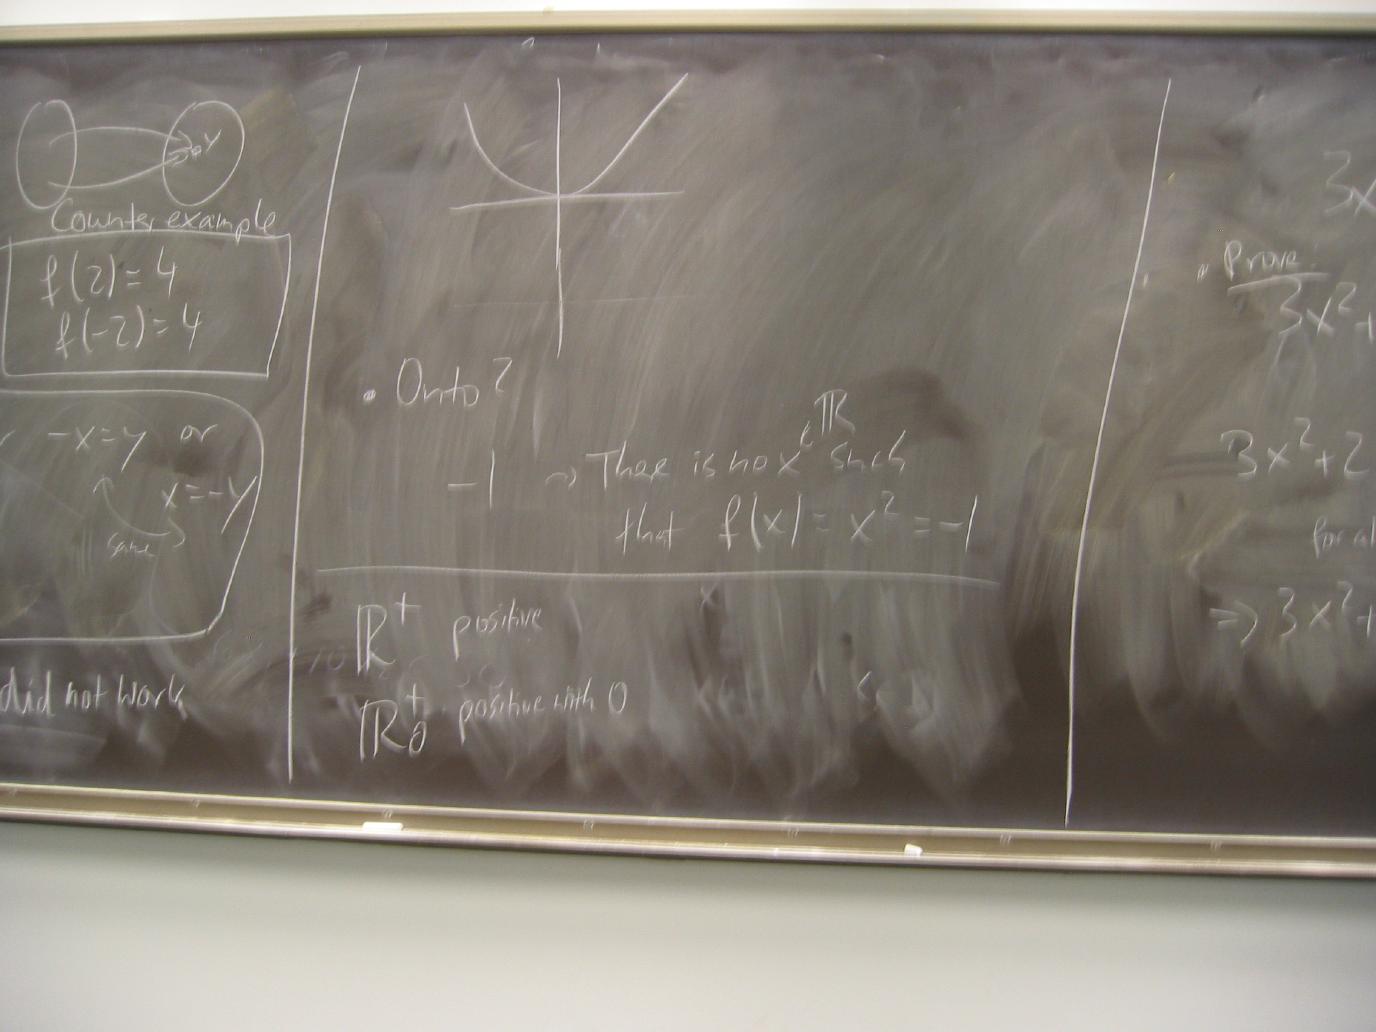 y
Counter example
f(2)=4
f(-2)=4
-x=y or
x=-y
same
did not work
• Onto?
-1 → There is no x∈ℝ such
that f(x)=x²=-1
ℝ⁺ positive
ℝ₀⁺ positive with 0
3x
• Prove:
3x²+
3x²+2
for al
⇒ 3x²+